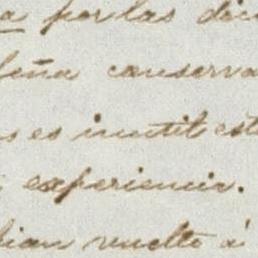 a por las dic
leña conserva
s es inutil est
experiencia.
bian vuelto á